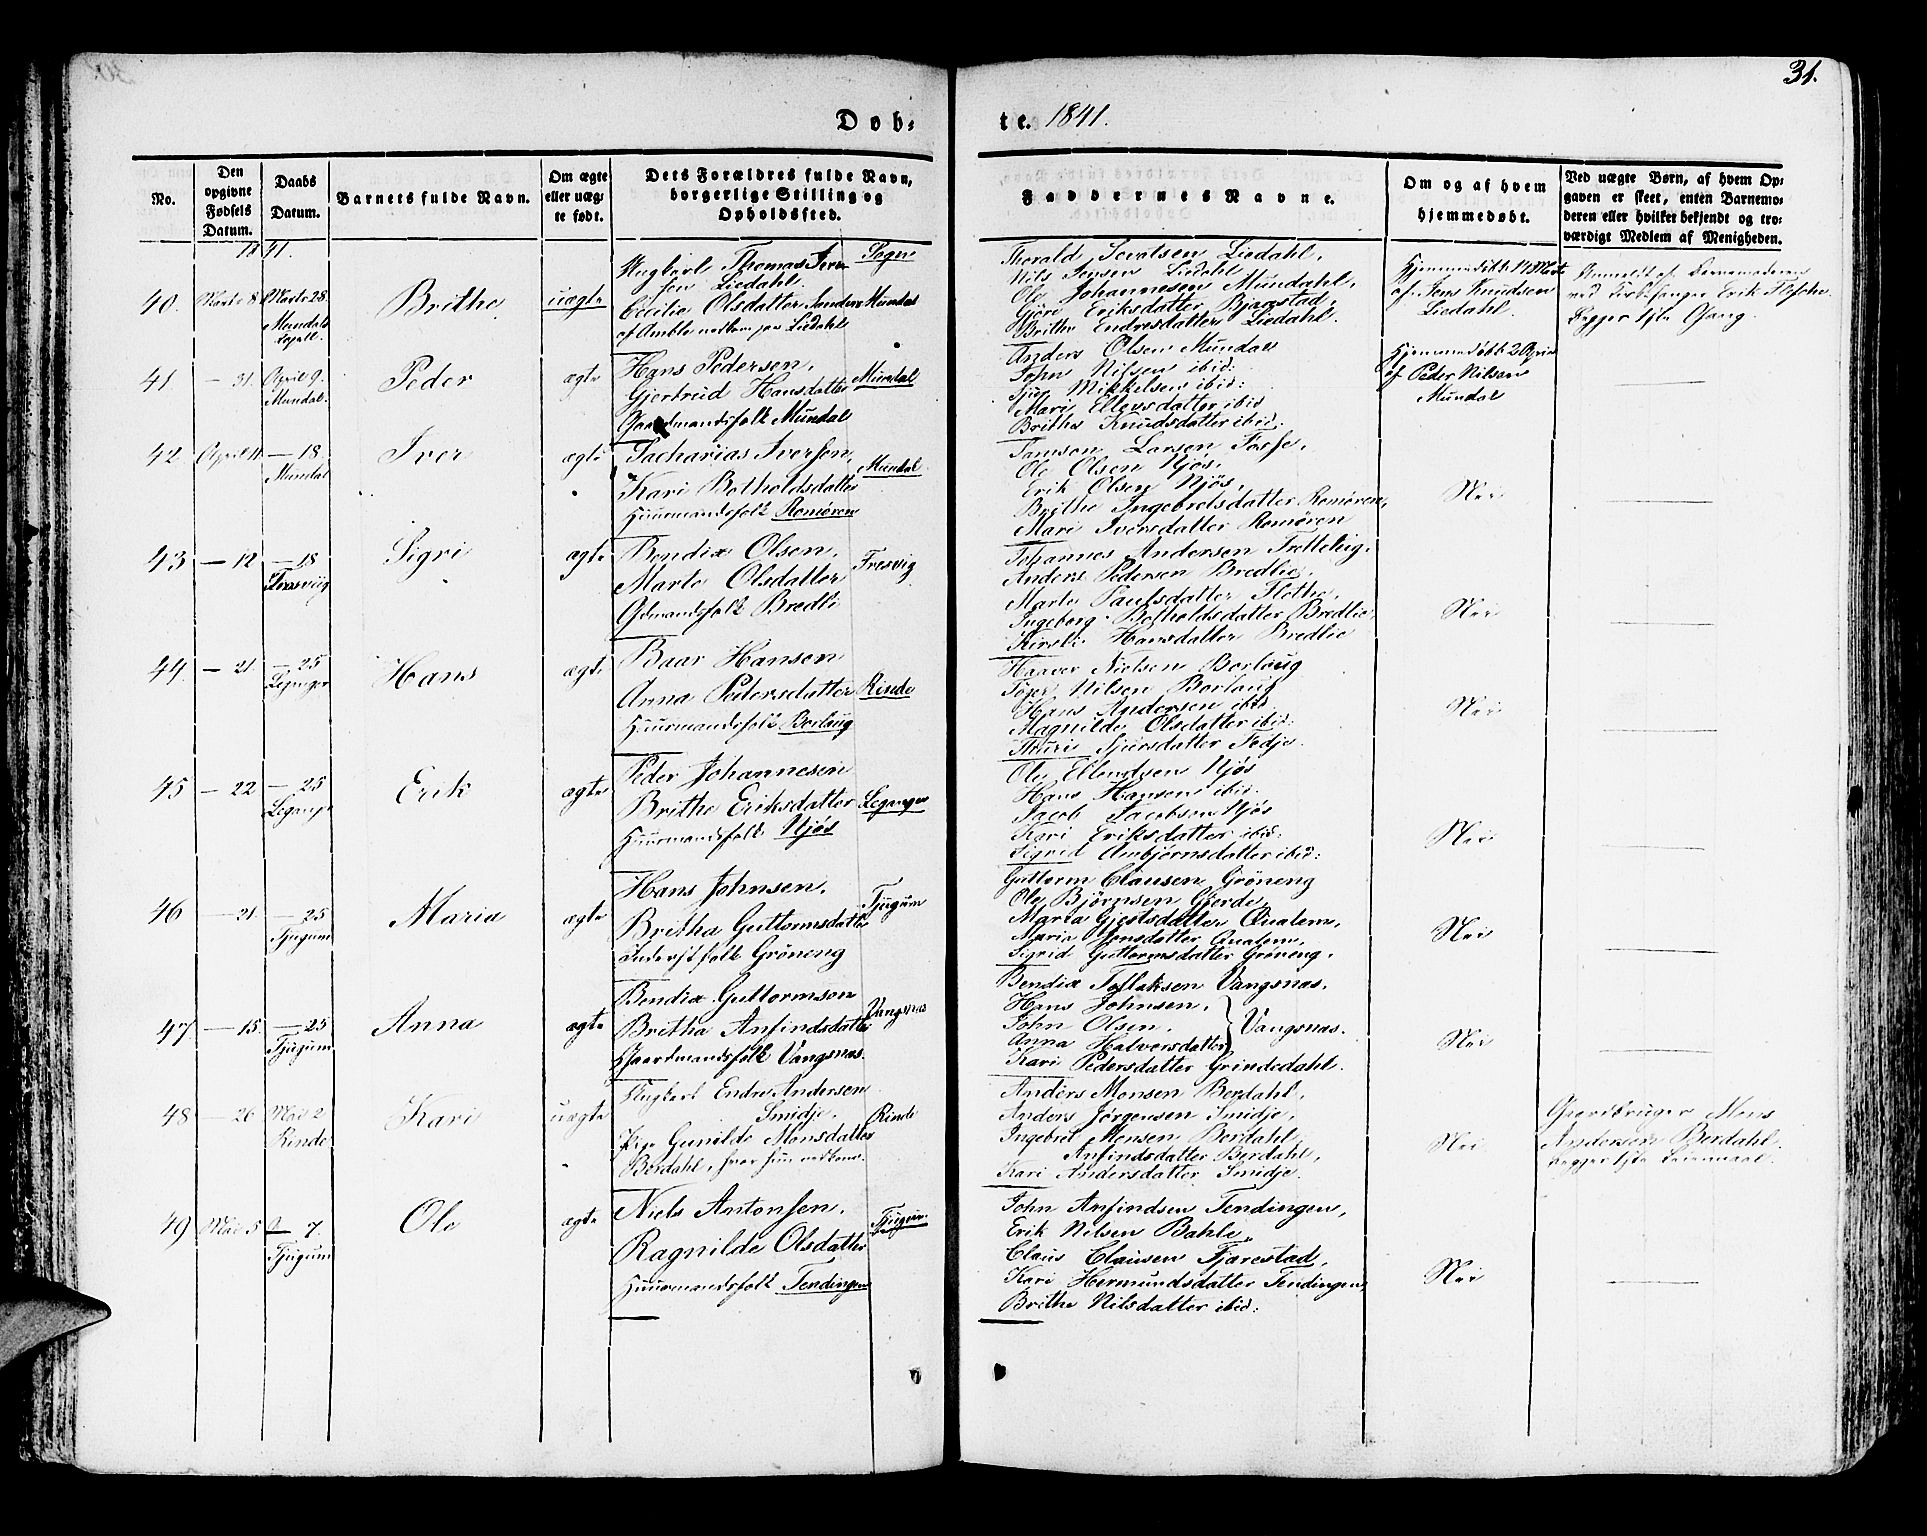 31.
Døb-
te. 1841.
No.
Den opgivne Fødsels Datum.
Daabs Datum.
Barnets fulde Navn.
Om ægte eller uægte født.
Dets Forældres fulde Navn, borgerlige Stilling og Opholdssted.
Faddernes Navne.
Om og af hvem hjemmedøbt.
Ved uægte Børn, af hvem Opgaven er skeet, enten Barnemoderen eller hvilket bekjendt og troværdigt Medlem af Menigheden.
1841.
Sogn
40. Marts 8 Marts 28. Brithe uægte
Mundals
Ungkarl Thomas Iver
sen Liedahl.
Cecilia Olsdatter
Mundal
Liedahl
Liedahl,
Nils Jensen Liedahl
Ole Johannesen Mundahl,
Gjöri Eriksdatter Bjaastad,
Brithe Endresdatter Liedahl.
Hjemmedöbt 17 Mart
af Jens Knudsen
Liedahl.
Anmeldt af Barnemoderen
Erik
Gang.
41. — 31. April 9. Peder ægte
Mundal.
Hans Pedersen,
Gjertrud Hansdatter
Gaardmandsfolk Mundal
Mundal
Anders Olsen Mundal
John Nilsen ibid:
Mikkelsen ibid:
Mari Ellensdatter ibid
Brithe Knudsdatter ibid.
Hjemmedöbt 2 April
af Peder Nilsen
Mundal
42. April 11 — 18. Iver ægte
Mundal
Zacharias Iversen,
Kari Botholdsdatter
Huusmandsfolk Romören
Mundal
Samson Larsen Fosse,
Ole Olsen Njös,
Erik Olsen Njös,
Brithe Ingebretsdatter Romören,
Mari Iversdatter Romören
Nei
43 — 12 — 18 Sigri ægte
Bendix Olsen,
Marte Olsdatter
Gdmandsfolk Bredli
Fresvig
Johannes Andersen Tretteteig.
Anders Pedersen Bredlie.
Marte Paulsdatter Flethe,
Ingeborg Botholdsdatter Bredlie,
Kirsti Hansdatter Bredlie
Nei
44. — 21. — 25 Hans ægte
Leganger
Baar Hansen
Anna Pedersdatter
Huusmandsfolk Borlaug
Rinde
Haaver Nielsen Borlaug
Nilsen Borlaug
Hans Andersen ibid.
Magnilde Olsdatter ibid:
Thuri Sjursdatter Fedje.
Nei
45 — 22 — 25 Erik ægte
Leganger
Peder Johannesen
Brithe Eriksdatter
Huusmandsfolk Njös
Leganger
Ole Ellendsen Njös
Hans Hansen ibid.
Jacob Jacobsen Njös
Kari Eriksdatter ibid:
Sigrid Ambjörnsdatter ibid:
Nei
46 — 21. — 25 Maria ægte
Tjugum
Hans Johnsen,
Britha Guttormsdatter
Gröneng
Tjugum
Guttorm Clausen Gröneng
Ole Björnsen Gjerde,
Maria Gjestsdatter Qualem,
Maria Jensdatter Qualem,
Sigrid Guttormsdatter Gröneng.
Nei
47. — 15. — 25 Anna ægte
Tjugum
Bendix Guttormson
Britha Anfindsdatter
Gaardmandsfolk Vangsnæs.
Vangsnæs
Bendix Tollaksen Vangsnæs.
Hans Johnsen,
John Olsen,
Anna Halvorsdatter
Vangsnæs.
Kari Pedersdatter Grindedahl.
Nei
48 — 26 Mai 2 Kari uægte
Rinde
Ungkarl Endre Andersen
Smidje,
Pige Gunilde Monsdatter
Berdahl,
Rinde
Anders Monsen Berdahl,
Anders Jörgensen Smidje,
Ingebret Monsen Berdahl,
Anfindsdatter Berdahl,
Kari Andersdatter Smidje.
Nei.
Gaardbruger Mons
Anderson Berdahl.
Leiermaal.
49 Mai 5 7. Ole ægte
Tjugum
Niels Antonsen,
Ragnilde Olsdatter
Huusmandsfolk Tendingen
Tjugum.
John Anfindsen Tendingen,
Erik Nilsen Bahle,
Claus Clausen Fjærestad,
Kari Hermundsdatter Tendingen,
Brithe Nilsdatter ibid:
Nei